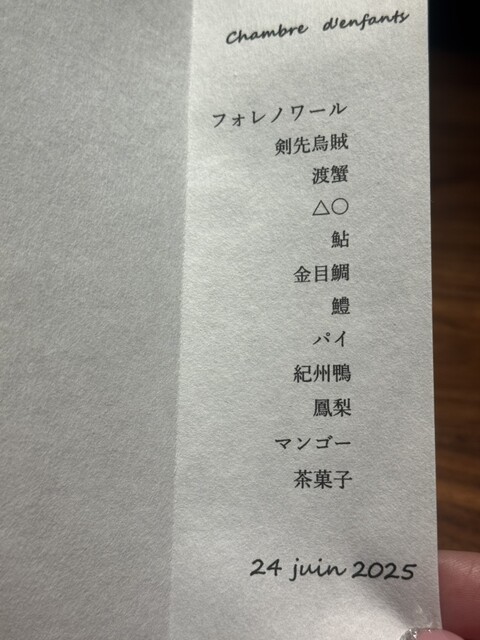 Chambre d'enfants
フォレノワール
剣先烏賊
渡蟹
△○
鮎
金目鯛
鱧
パイ
紀州鴨
鳳梨
マンゴー
茶菓子
24 juin 2025